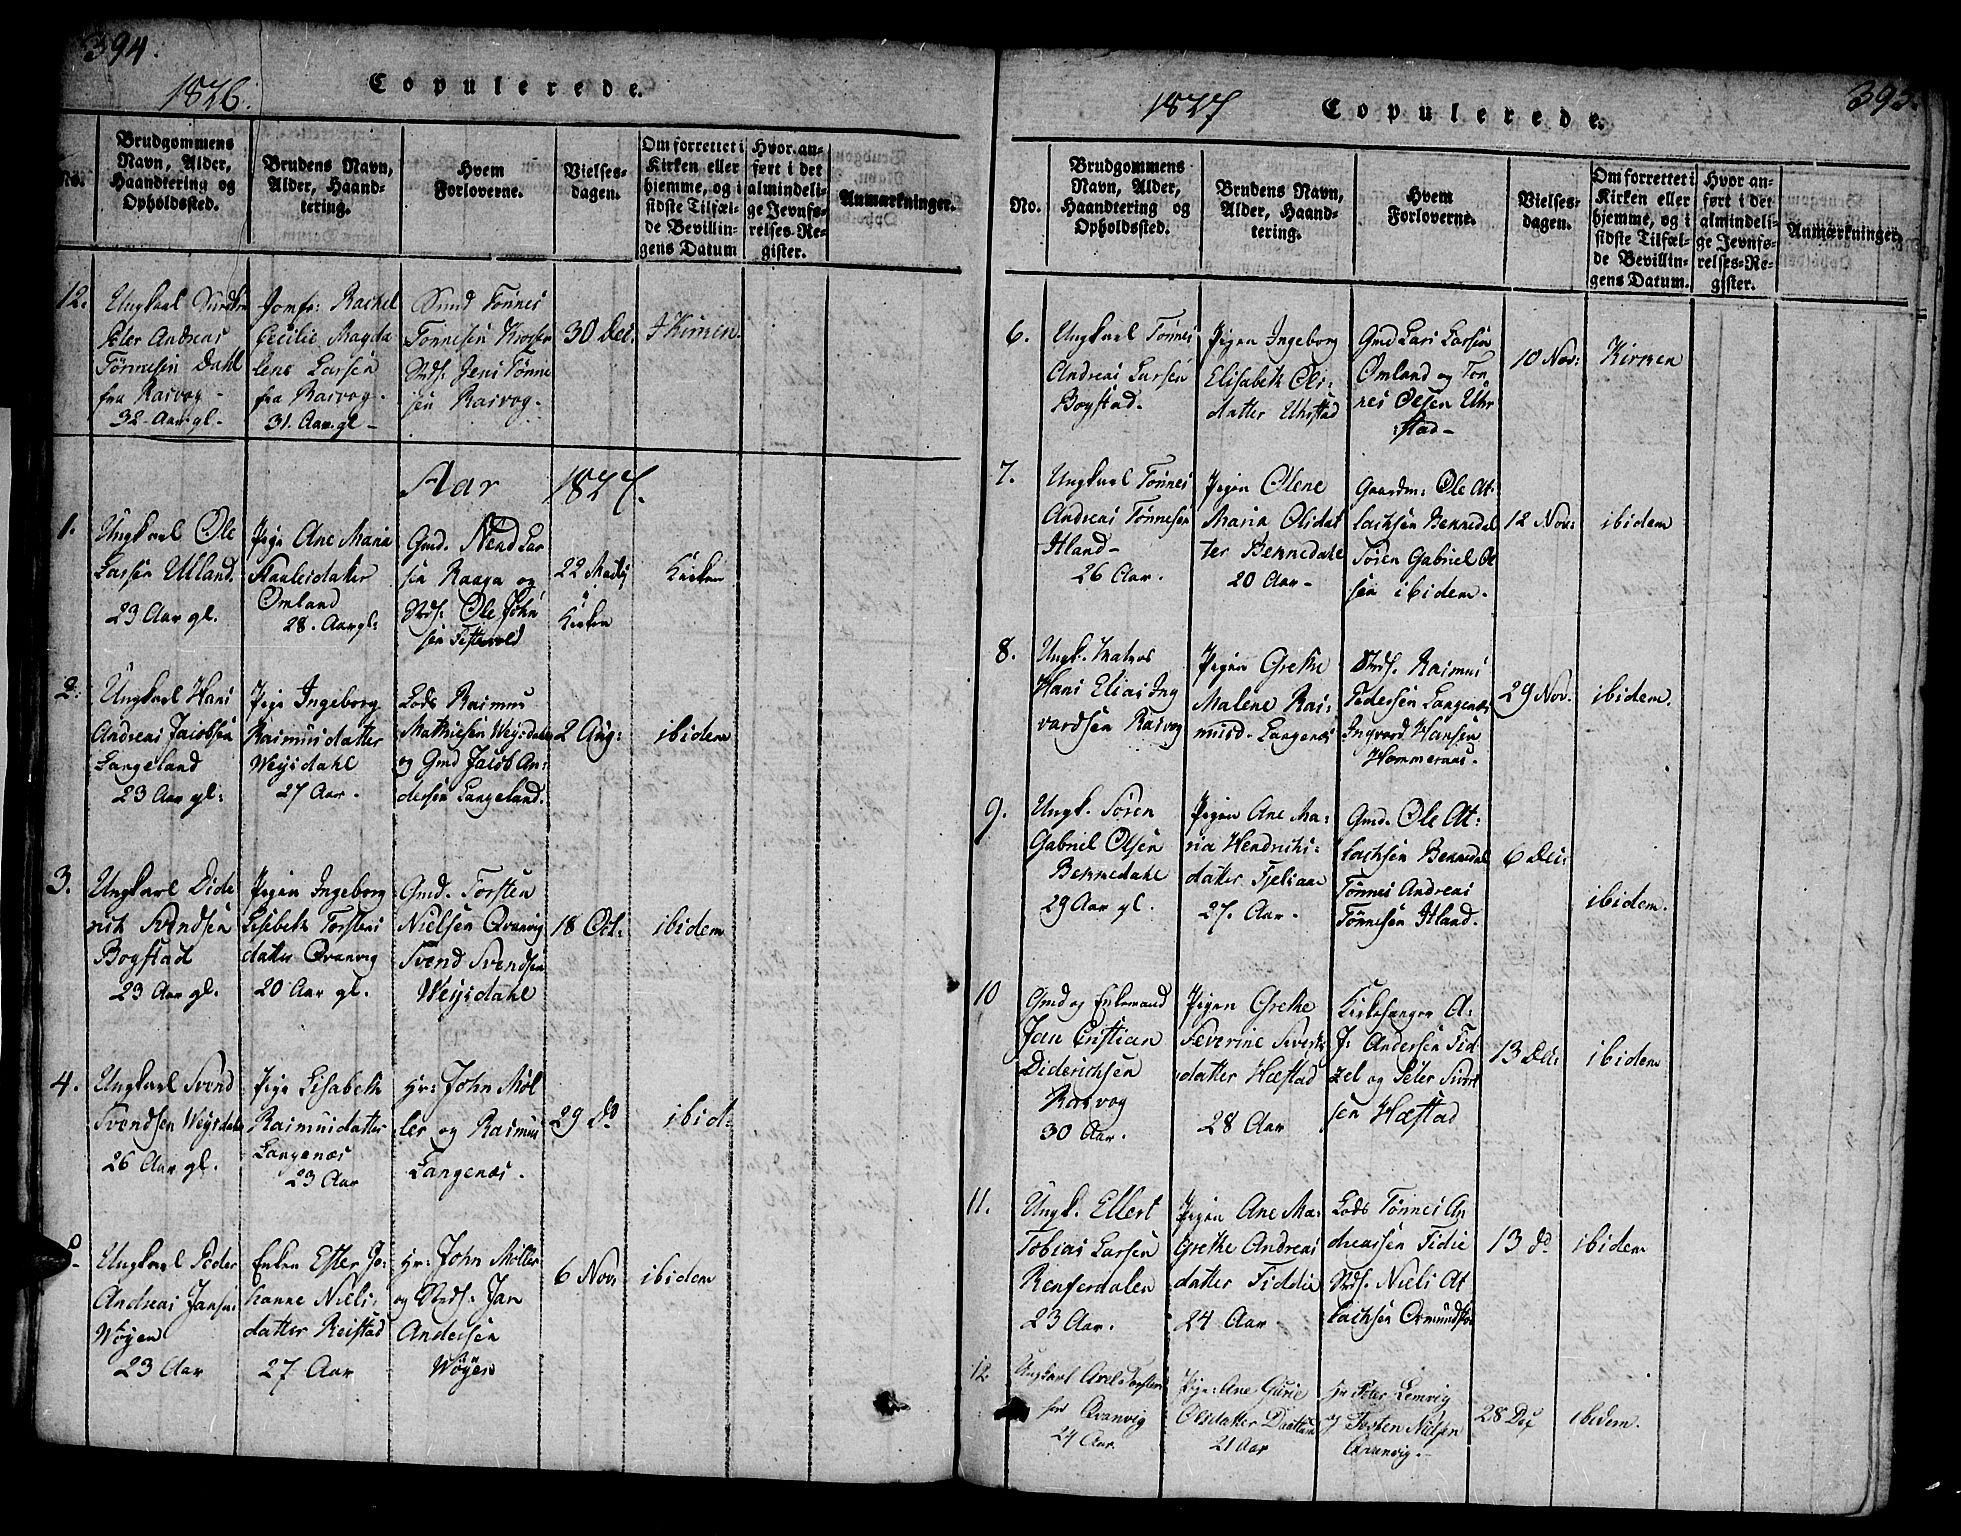 394.
1826.
Copulerede.
No.
Brudgommens
Navn, Alder,
Haandtering og
Opholdssted.
Brudens Navn,
Alder, Haand-
tering.
Hvem
Forloverne.
Vielses-
dagen.
Om forrettet i
Kirken eller
hjemme, og i
sidste Tilfæl-
de Bevillin-
gens Datum
Hvor an-
ført i det
almindeli-
ge Jevnfø-
relses-Re-
gister.
Anmærkninger.
12.
Ungkarl
Peter Andreas
Tönnesen Dahl
fra Rasvog -
32 Aar gl -
Jomfr: Rachel
Cecilie Magda
lene Larsen
fra Rasvog -
31. Aar gl -
Smed Tönnes
Tonnesen
Strds: Jens Tönne
sen Rasvog -
30 Dec:
I Kirken.
Aar 1827.
1.
Ungkarl Ole
Larsen Ulland.
23 Aar gl.
Pige Ane Maria
Staalesdatter
Omland
28. Aar gl:
Gmd. Lar
sen Raaga og
Strds: Ole John
sen
22 Martj
i
Kirken
Kirken
2.
Ungkarl Hans
Andreas Jacobsen
Langeland
23 Aar gl:
Pige Ingeborg
Rasmusdatter
Weisdahl
27 Aar -
Lods Rasmus
Mathiesen Weisdal
og Gmd Jacob An:
dersen Langeland.
2 Aug:
ibidem
3.
Ungkarl Dide
rik Svendsen
Bogstad
23 Aar gl.
Pigen Ingeborg
Lisebeth Torstens
datter Qvanvig
20 Aar gl.
Gmd. Torsten
Nielsen Qvanvig
Svend Svendsen
Weisdahl
18 Oct:
ibidem
4.
Ungkarl Svend
Svendsen Weisdal
26 Aar gl.
Pige Lisabeth
Rasmusdatter
Langenæs
23 Aar
Hr: John Möl
ler og Rasmus
Langenæs -
29 do
ibid:
5
Ungkarl Peder
Andreas Jansen
Wöyen
23 Aar
Enken Ester Jo:
hanne Niels:
datter Reistad
27 Aar
Hr: John Möller
og Strds: Jan
Andersen
Wöyen
6 Nov:
ibidem
395.
1827
Copulerede.
No.
Brudgommens
Navn, Alder,
Haandtering og
Opholdssted.
Brudens Navn,
Alder, Haand-
tering.
Hvem
Forloverne.
Vielses-
dagen.
Om forrettet i
Kirken eller
hjemme, og i
sidste Tilfæl-
de Bevillin-
gens Datum.
Hvor an-
ført i det
almindeli-
ge Jevnfø-
relses-Re-
gister.
Anmærkninger.
6.
Ungkarl Tönnes
Andreas Larsen
Bogstad.
Pigen Ingeborg
Elisabeth Ols:
datter Uhrstad
Gmd Lars Larsen
Omland og Tön
nes Olsen Uhr
stad -
10 Nov:
Kirken
7.
Ungkarl Tönnes
Andreas Tönnesen
Itland -
26 Aar.
Pigen Olene
Maria Olsdat
ter Bekkedahl
20 Aar -
Gaardm: Ole At
lachsen Bekkedal
Sören Gabriel Ol
sen ibidem -
12 Nov:
ibidem
8.
Ungk. Matros
Hans Elias Ing
vardsen Rasvog
Pigen Grethe
Malene Ras:
musd. Langenæs
Strds. Rasmus
Pedersen Langenæs
Ingvard Hansen
Hommeraas.
29 Nov.
ibidem.
9.
Ungk. Sören
Gabriel Olsen
Bekkedahl
29 Aar gl.
Pigen Ane Ma:
ria Hendriks:
datter
27. Aar -
Gmd. Ole At:
lachsen Bekkedal
Tönnes Andreas
Tönnesen Itland.
6 Dec:
ibidem.
10
Gmd og Enkemand
Jan Cristian
Diderichsen
Rasvog
30 Aar.
Pigen Grethe
Severine Sivert
datter Hæstad
28 Aar
Kirkesanger A:
J: Andersen Tid
zel og Peter Sivert
sen Hæstad
13 Dec:
ibidem
11.
Ungk. Ellert
Tobias Larsen
Rensserdalen
23 Aar.
Pigen Ane Ma:
Grethe Andreas
datter Fiddie
24 Aar -
Lods Tönnes An
dreassen Fidie
Strds. Niels At
lachsen
13 do
ibidem
12
Ungkarl Axel Torsten
sen Qvanvig
24 Aar
Pige: Ane Gurie
Olsdatter
21 Aar
Hr Peter Lemvig
og Torsten Nielsen
Qvanvig -
28 Dec
ibidem.